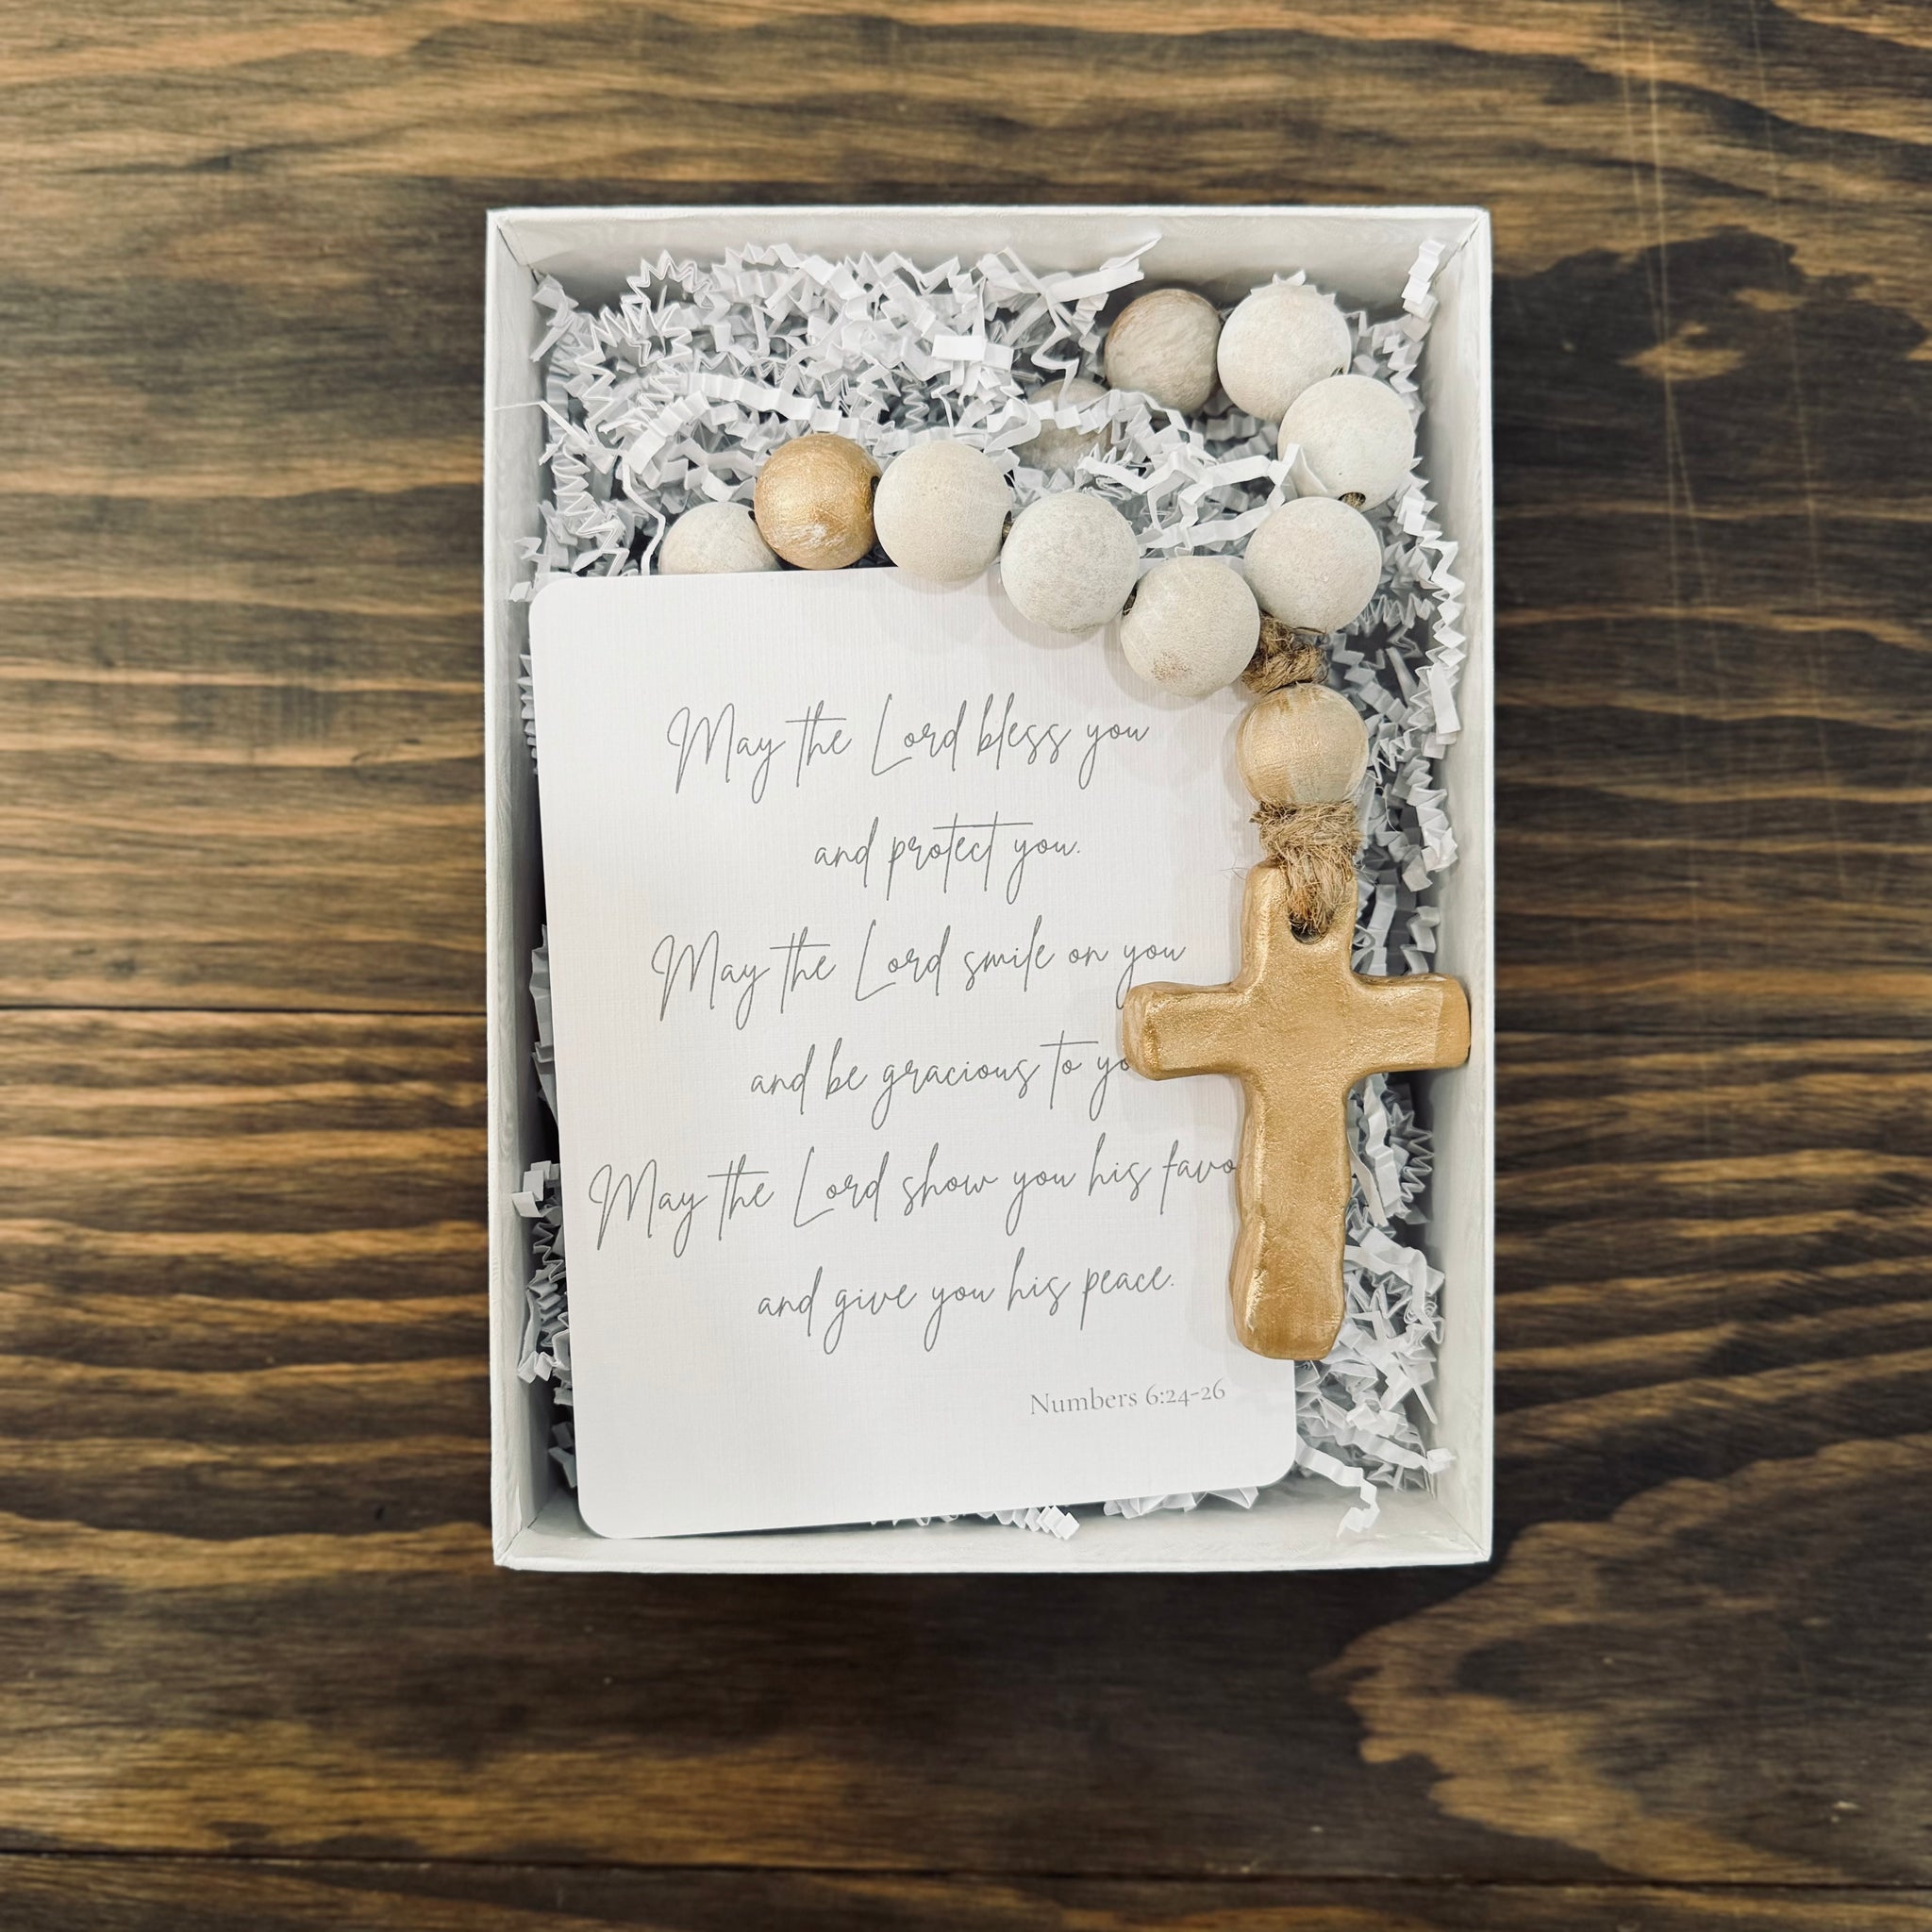 May the Lord bless you
and protect you.
May the Lord smile on you
and be gracious to
May the Lord show you his
and give you his peace.
Numbers 6:24-26